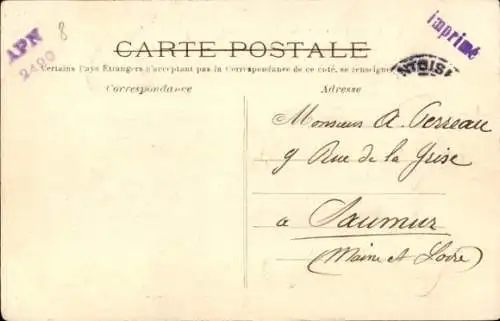 APN
2420
8
imprimé
CARTE POSTALE
Certains Pays Étrangers n'acceptant pas la Correspondance de ce coté, se renseigner
Correspondance
Adresse
Monsieur A. Perreau
9 Rue de la Grise
a Saumur
(Maine et Loire)